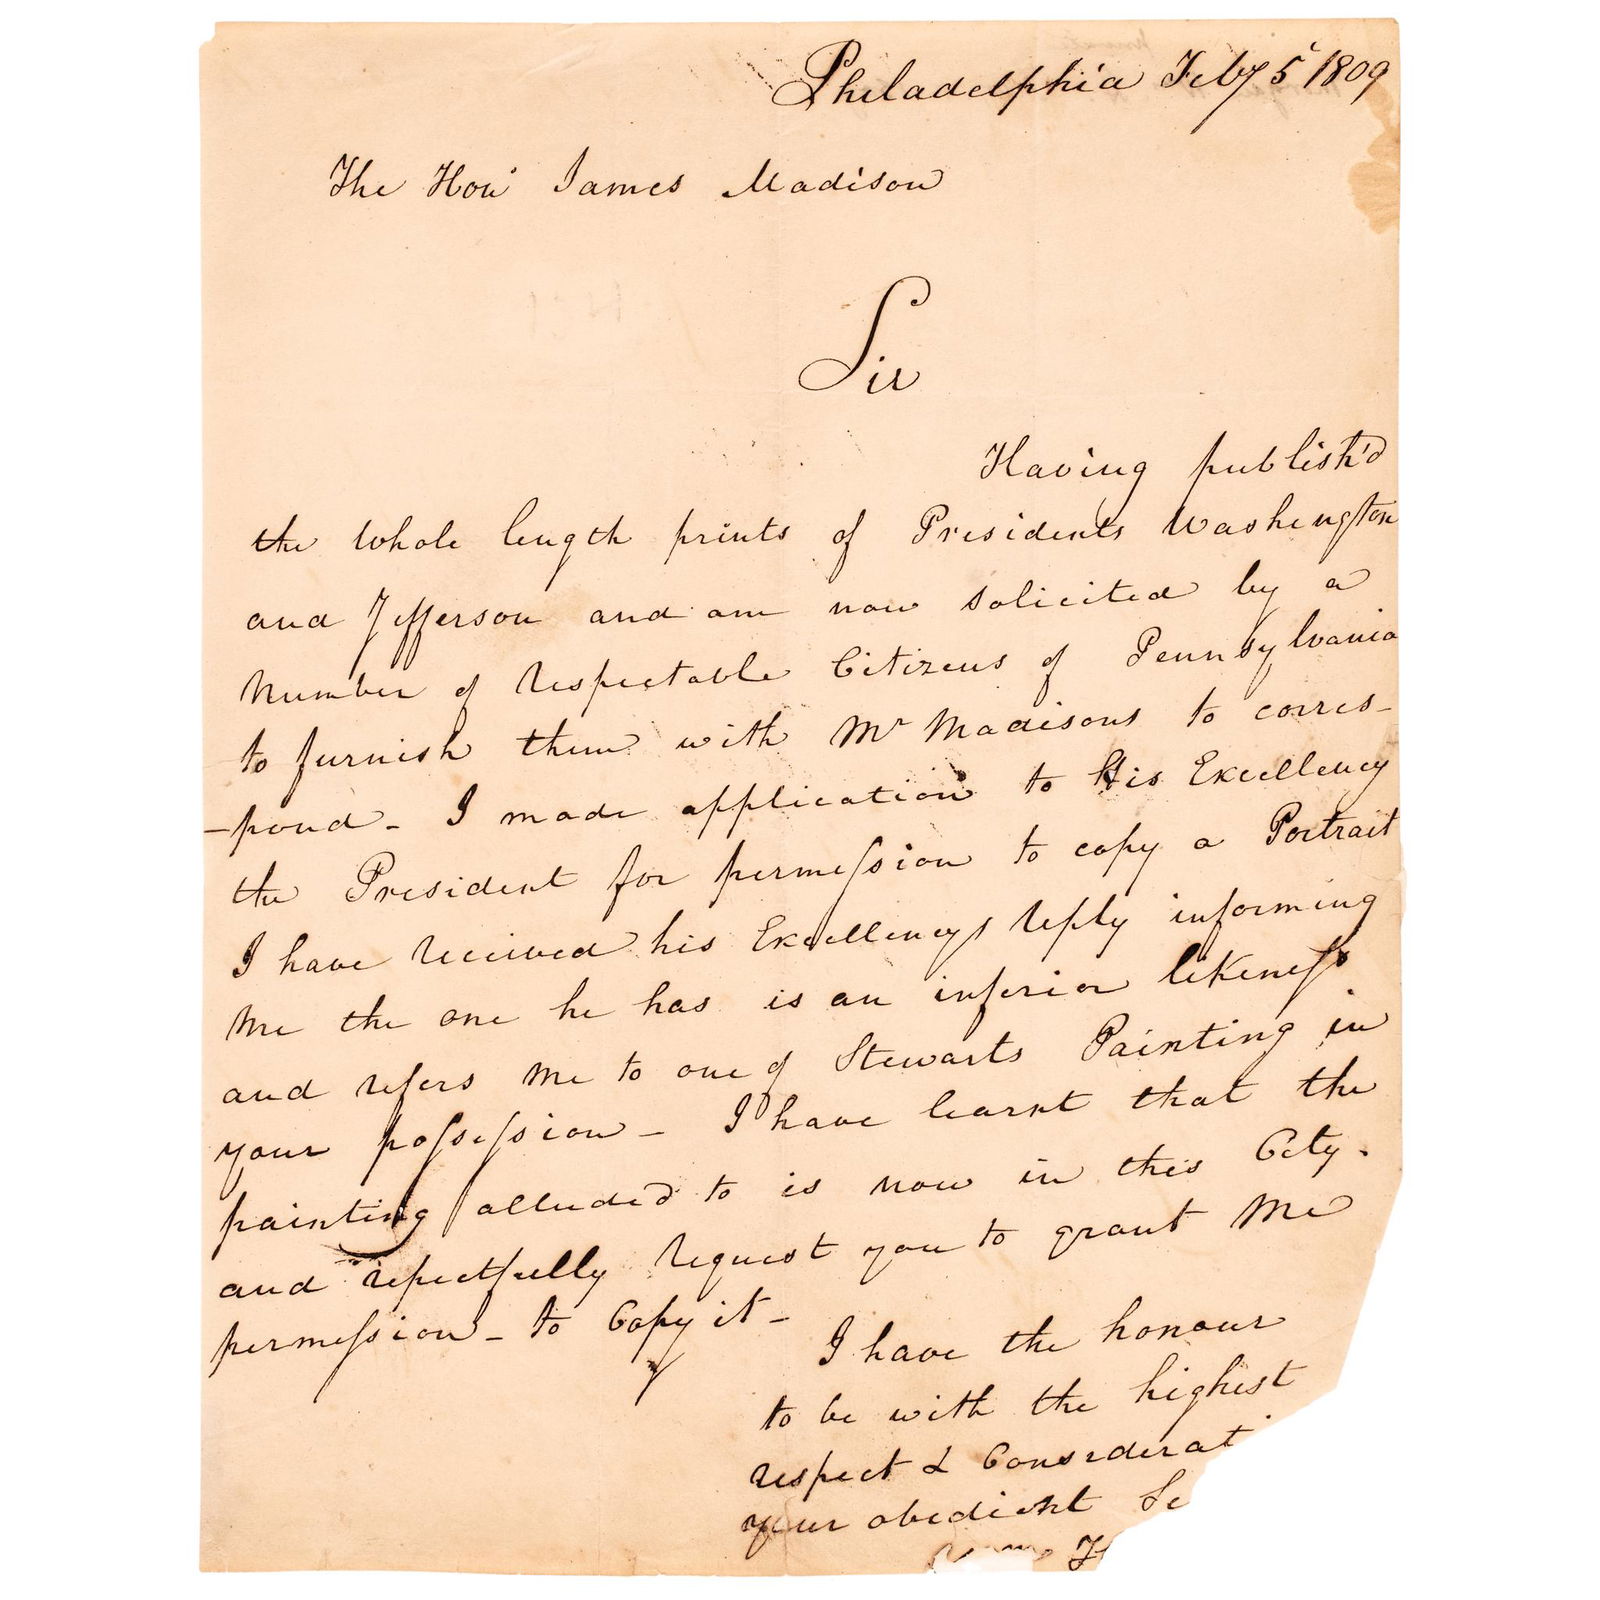 Philadelphia Feby 5 1809
The Hon James Madison
Sir
Having publish'd
the whole length prints of Presidents Washington
and Jefferson and am now solicited by a
Number of respectable Citizens of Pennsylvania
to furnish them with Mr Madisons to corres-
-pond - I made application to His Excellency
the President for permission to copy a Portrait
I have received his Excellencys reply informing
Me the one he has is an inferior likeness
and refers Me to one of Stewarts Painting in
your possession - I have learnt that the
painting alluded to is now in this City.
and respectfully request you to grant Me
permission - to Copy it -
I have the honour
to be with the highest
respect & Considerat
your obedient Se